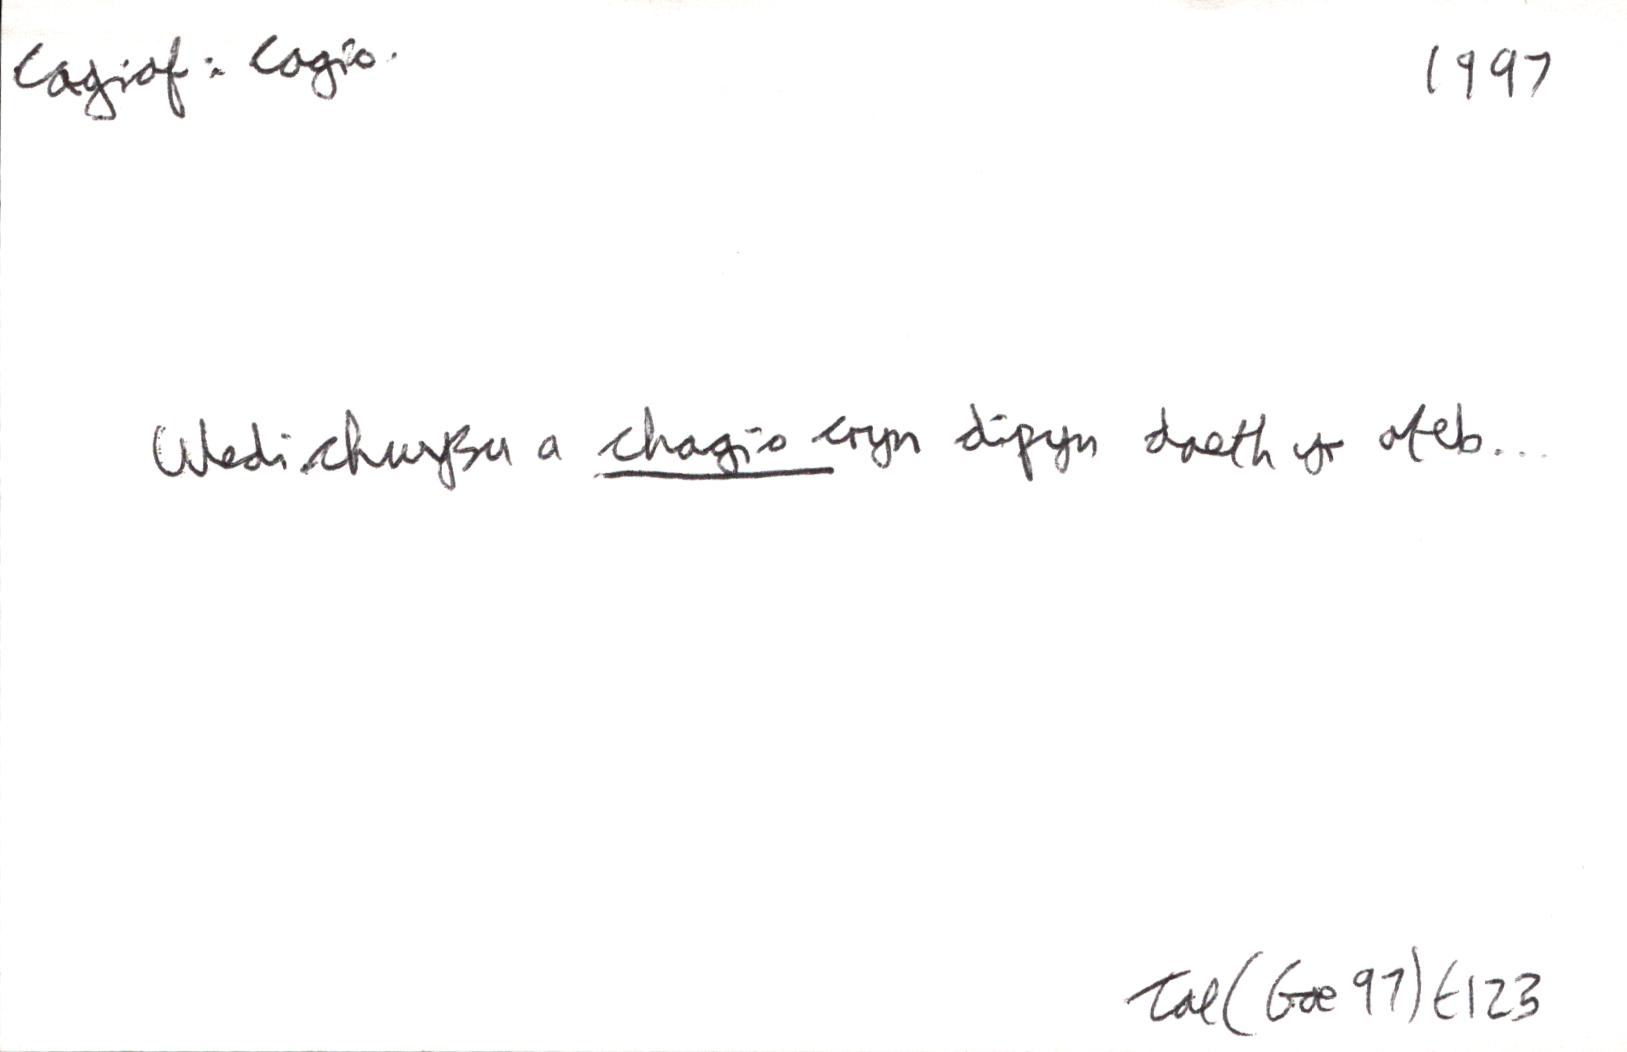 Cagiaf: Cagio. 1997
Wedi chwysu a chagio cryn dipyn daeth yr ateb...
Tal (Gae 97) t123